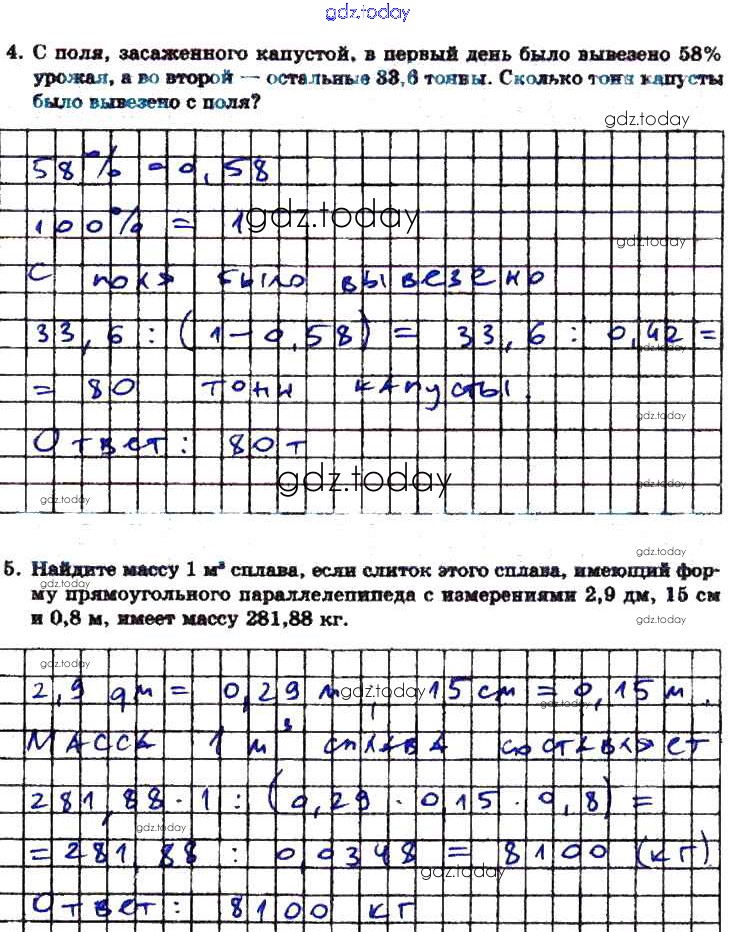 gdz.today
4. С поля, засаженного капустой, в первый день было вывезено 58%
урожая, а во второй — остальные 33,6 тонны. Сколько тонн капусты
было вывезено с поля?
gdz.today
58% = 0,58
100% = 1
gdz.today
gdz.today
С поля было вывезено
33,6 : (1-0,58) = 33,6 : 0,42 =
gdz.today
= 80 тонн капусты.
gdz.today
Ответ: 80 т
gdz.today
gdz.today
gdz.today
gdz.today
5. Найдите массу 1 м³ сплава, если слиток этого сплава, имеющий фор-
gdz.today
му прямоугольного параллелепипеда с измерениями 2,9 дм, 15 см
и 0,8 м, имеет массу 281,88 кг.
gdz.today
gdz.today
2,9 дм = 0,29 м, 15 см = 0,15 м.
gdz.today
gdz.today
Масса 1 м³ сплава составляет
281,88 · 1 : (0,29 · 0,15 · 0,8) =
gdz.today
= 281,88 : 0,0348 = 8100 (кг)
gdz.today
Ответ: 8100 кг